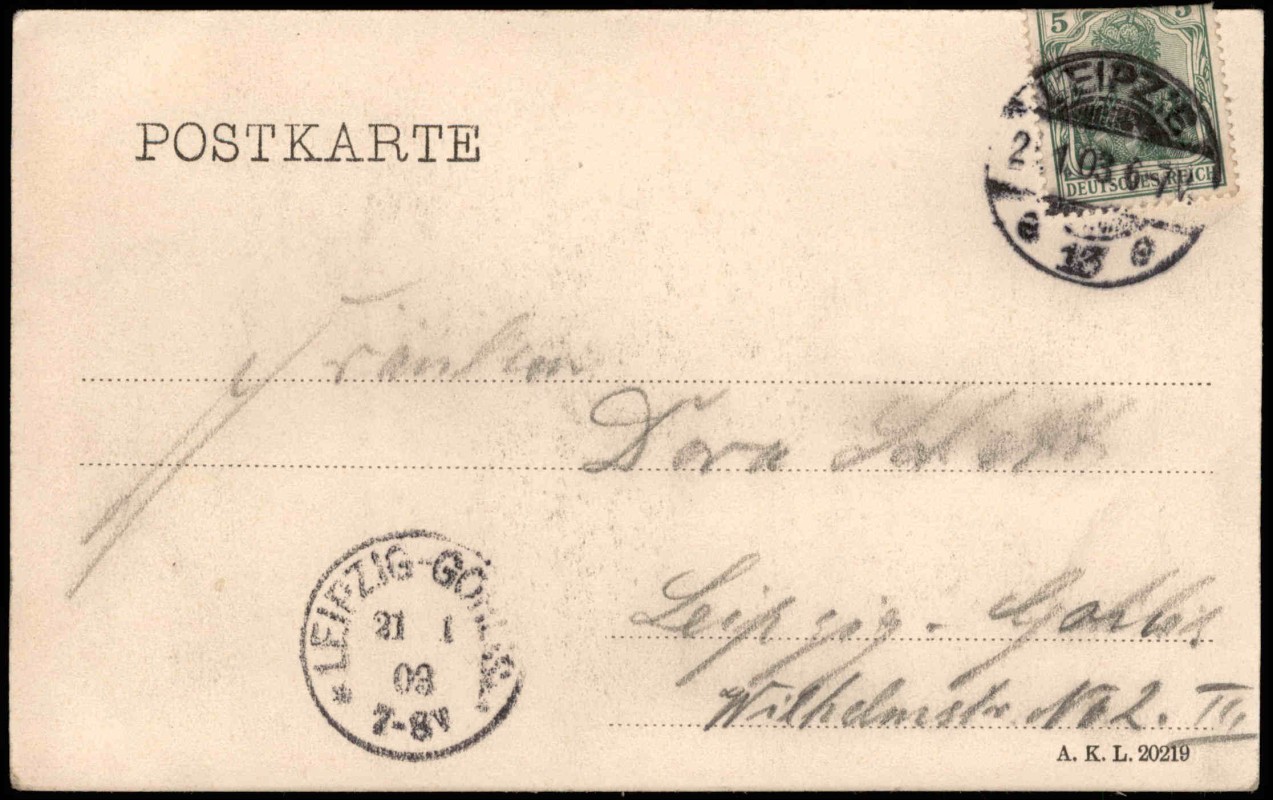 5 5
DEUTSCHES REICH
LEIPZIG
.1.03.6-7V
e 13 e
POSTKARTE
Fräulein
Dora
Leipzig-Gohlis
Wilhelmstr No 2. II,
LEIPZIG-GOHLIS
21 1
03
7-8V
A. K. L. 20219